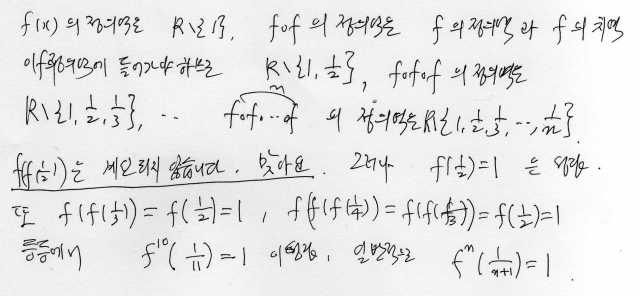 f(x) 의 정의역은 R\{1}, f∘f 의 정의역은 f의 정의역과 f의 치역
이 f의 정의역에 들어가야 하므로 R\{1, 1/2}, f∘f∘f 의 정의역은
R\{1, 1/2, 1/3}, ... f∘f∘...∘f 의 정의역은 R\{1, 1/2, 1/3, ..., 1/n}.
f(f(1/2))는 세어지지 않습니다. 맞아요. 그러나 f(1/2)=1 은 되어요.
또 f(f(1/3)) = f(1/2) = 1, f(f(f(1/4))) = f(f(1/3)) = f(1/2) = 1
등등에서 f^10(1/11) = 1 이 되고, 일반적으로 f^n(1/(n+1)) = 1.